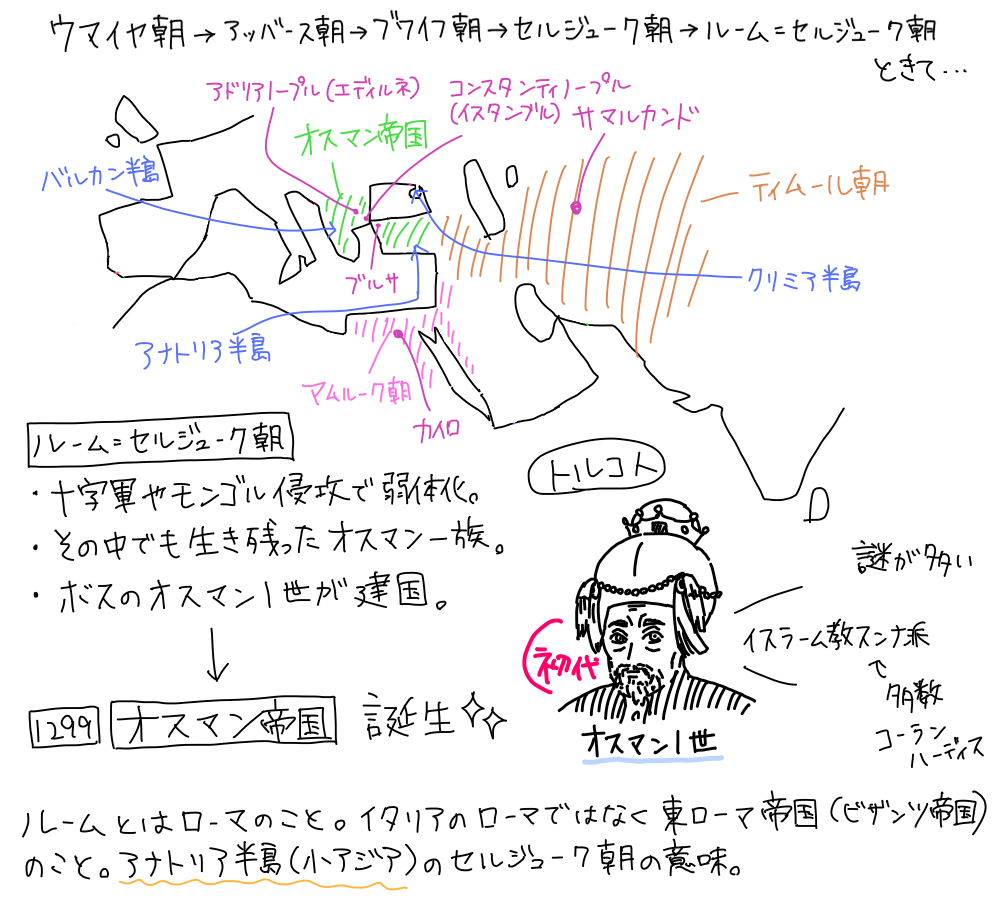 ウマイヤ朝→アッバース朝→ブワイフ朝→セルジューク朝→ルーム=セルジューク朝
ときて…
アドリアノープル(エディルネ)
コンスタンティノープル
(イスタンブル)
サマルカンド
オスマン帝国
バルカン半島
ティムール朝
ブルサ
クリミア半島
アナトリア半島
マムルーク朝
カイロ
ルーム=セルジューク朝
・十字軍やモンゴル侵攻で弱体化。
・その中でも生き残ったオスマン一族。
・ボスのオスマン1世が建国。
1299 オスマン帝国 誕生
トルコ人
謎が多い
イスラーム教スンナ派
多数
コーラン
ハーディス
初代
オスマン1世
ルームとはローマのこと。イタリアのローマではなく東ローマ帝国(ビザンツ帝国)
のこと。アナトリア半島(小アジア)のセルジューク朝の意味。